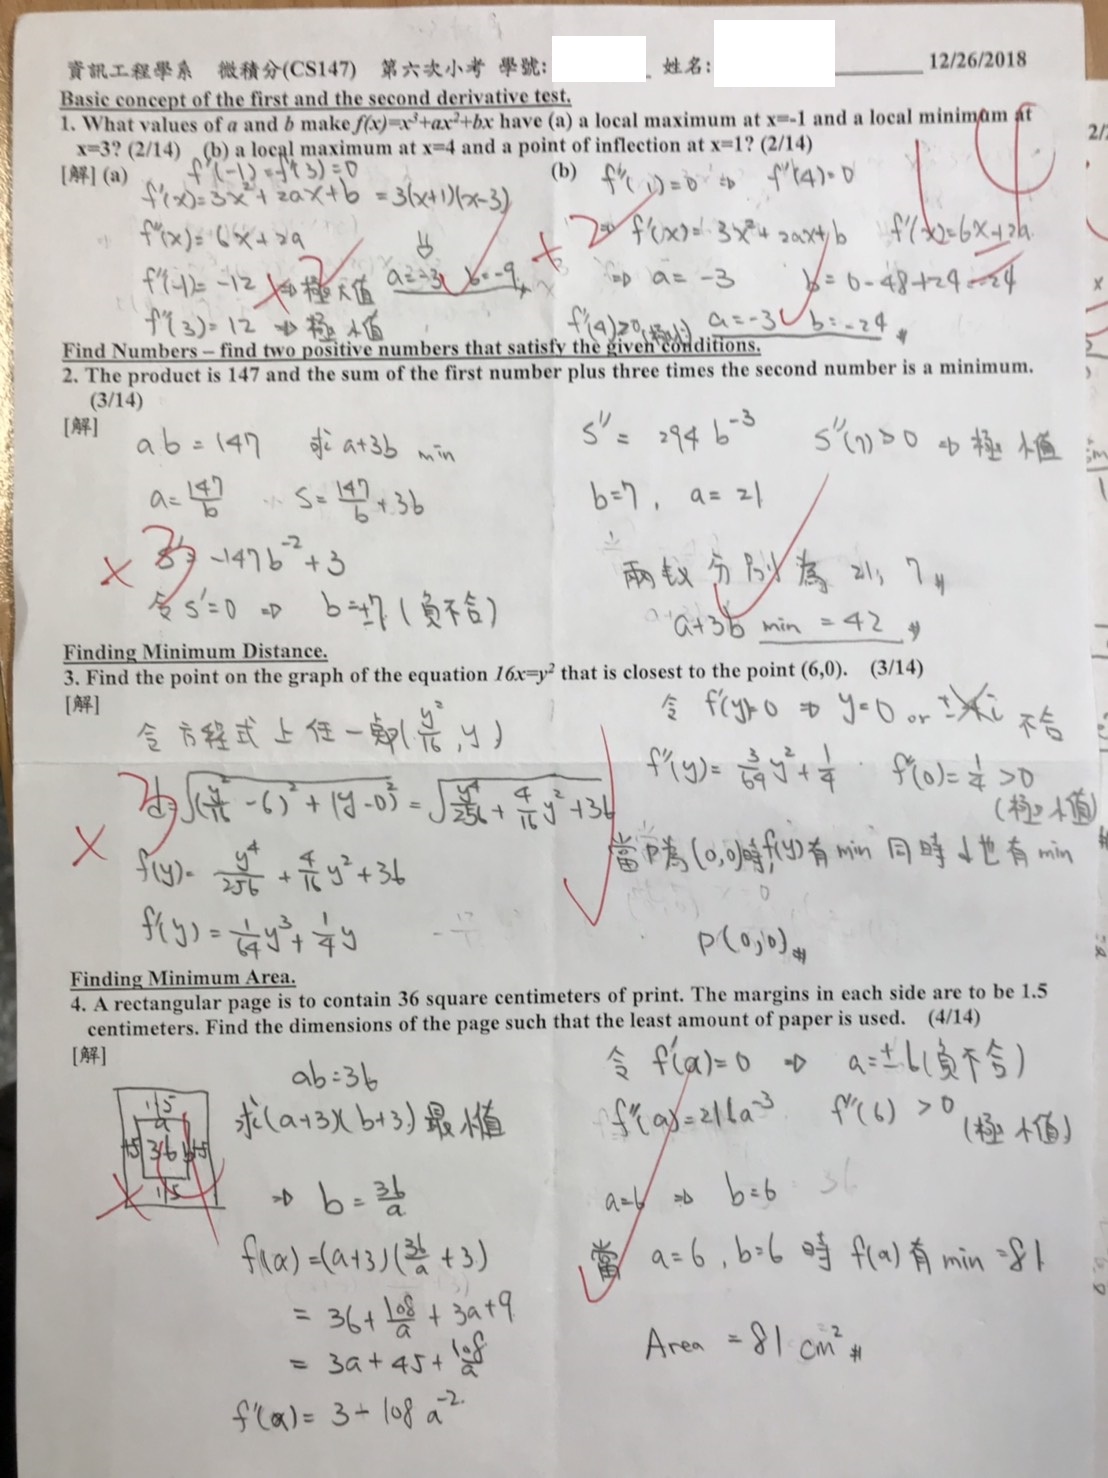 資訊工程學系 微積分(CS147) 第六次小考 學號: 姓名: 12/26/2018
Basic concept of the first and the second derivative test.
1. What values of a and b make f(x)=x³+ax²+bx have (a) a local maximum at x=-1 and a local minimum at
x=3? (2/14) (b) a local maximum at x=4 and a point of inflection at x=1? (2/14)
[解] (a)
f'(-1)=f'(3)=0
f'(x)=3x²+2ax+b =3(x+1)(x-3)
f''(x)=6x+2a
f''(-1)=-12 ⇒ 極大值 a=-3 b=-9
f''(3)=12 ⇒ 極小值
(b)
f''(1)=0 ⇒ f'(4)=0
2
⇒ f'(x)=3x²+2ax+b f''(x)=6x+2a
⇒ a=-3 b=0-48+24=-24
f''(4)>0(極小) a=-3 b=-24
Find Numbers – find two positive numbers that satisfy the given conditions.
2. The product is 147 and the sum of the first number plus three times the second number is a minimum.
(3/14)
[解]
ab=147 求 a+3b min
a=147/b S=147/b+3b
3
S'=-147b⁻²+3
令 S'=0 ⇒ b=±7 (負不合)
S''=294b⁻³ S''(7)>0 ⇒ 極小值
b=7, a=21
兩數分別為 21, 7
a+3b min =42
Finding Minimum Distance.
3. Find the point on the graph of the equation 16x=y² that is closest to the point (6,0). (3/14)
[解]
令方程式上任一點P(y²/16, y)
d=√((y²/16-6)²+(y-0)²)=√(y⁴/256+4/16y²+36
f(y)=y⁴/256+4/16y²+36
f'(y)=1/64y³+1/4y
令 f'(y)=0 ⇒ y=0 or 不合
f''(y)=3/64y²+1/4 f''(0)=1/4>0
(極小值)
當P為(0,0)時,f(y)有min 同時d也有min
P(0,0)
Finding Minimum Area.
4. A rectangular page is to contain 36 square centimeters of print. The margins in each side are to be 1.5
centimeters. Find the dimensions of the page such that the least amount of paper is used. (4/14)
[解]
1.5
a
1.5 36 b 1.5
1.5
ab=36
求(a+3)(b+3)最小值
⇒ b=36/a
f(a)=(a+3)(36/a+3)
=36+108/a+3a+9
=3a+45+108/a
f'(a)=3-108a⁻²
令 f'(a)=0 ⇒ a=±6(負不合)
f''(a)=216a⁻³ f''(6)>0
(極小值)
a=6 ⇒ b=6
當 a=6, b=6 時 f(a)有min=81
Area =81 cm²